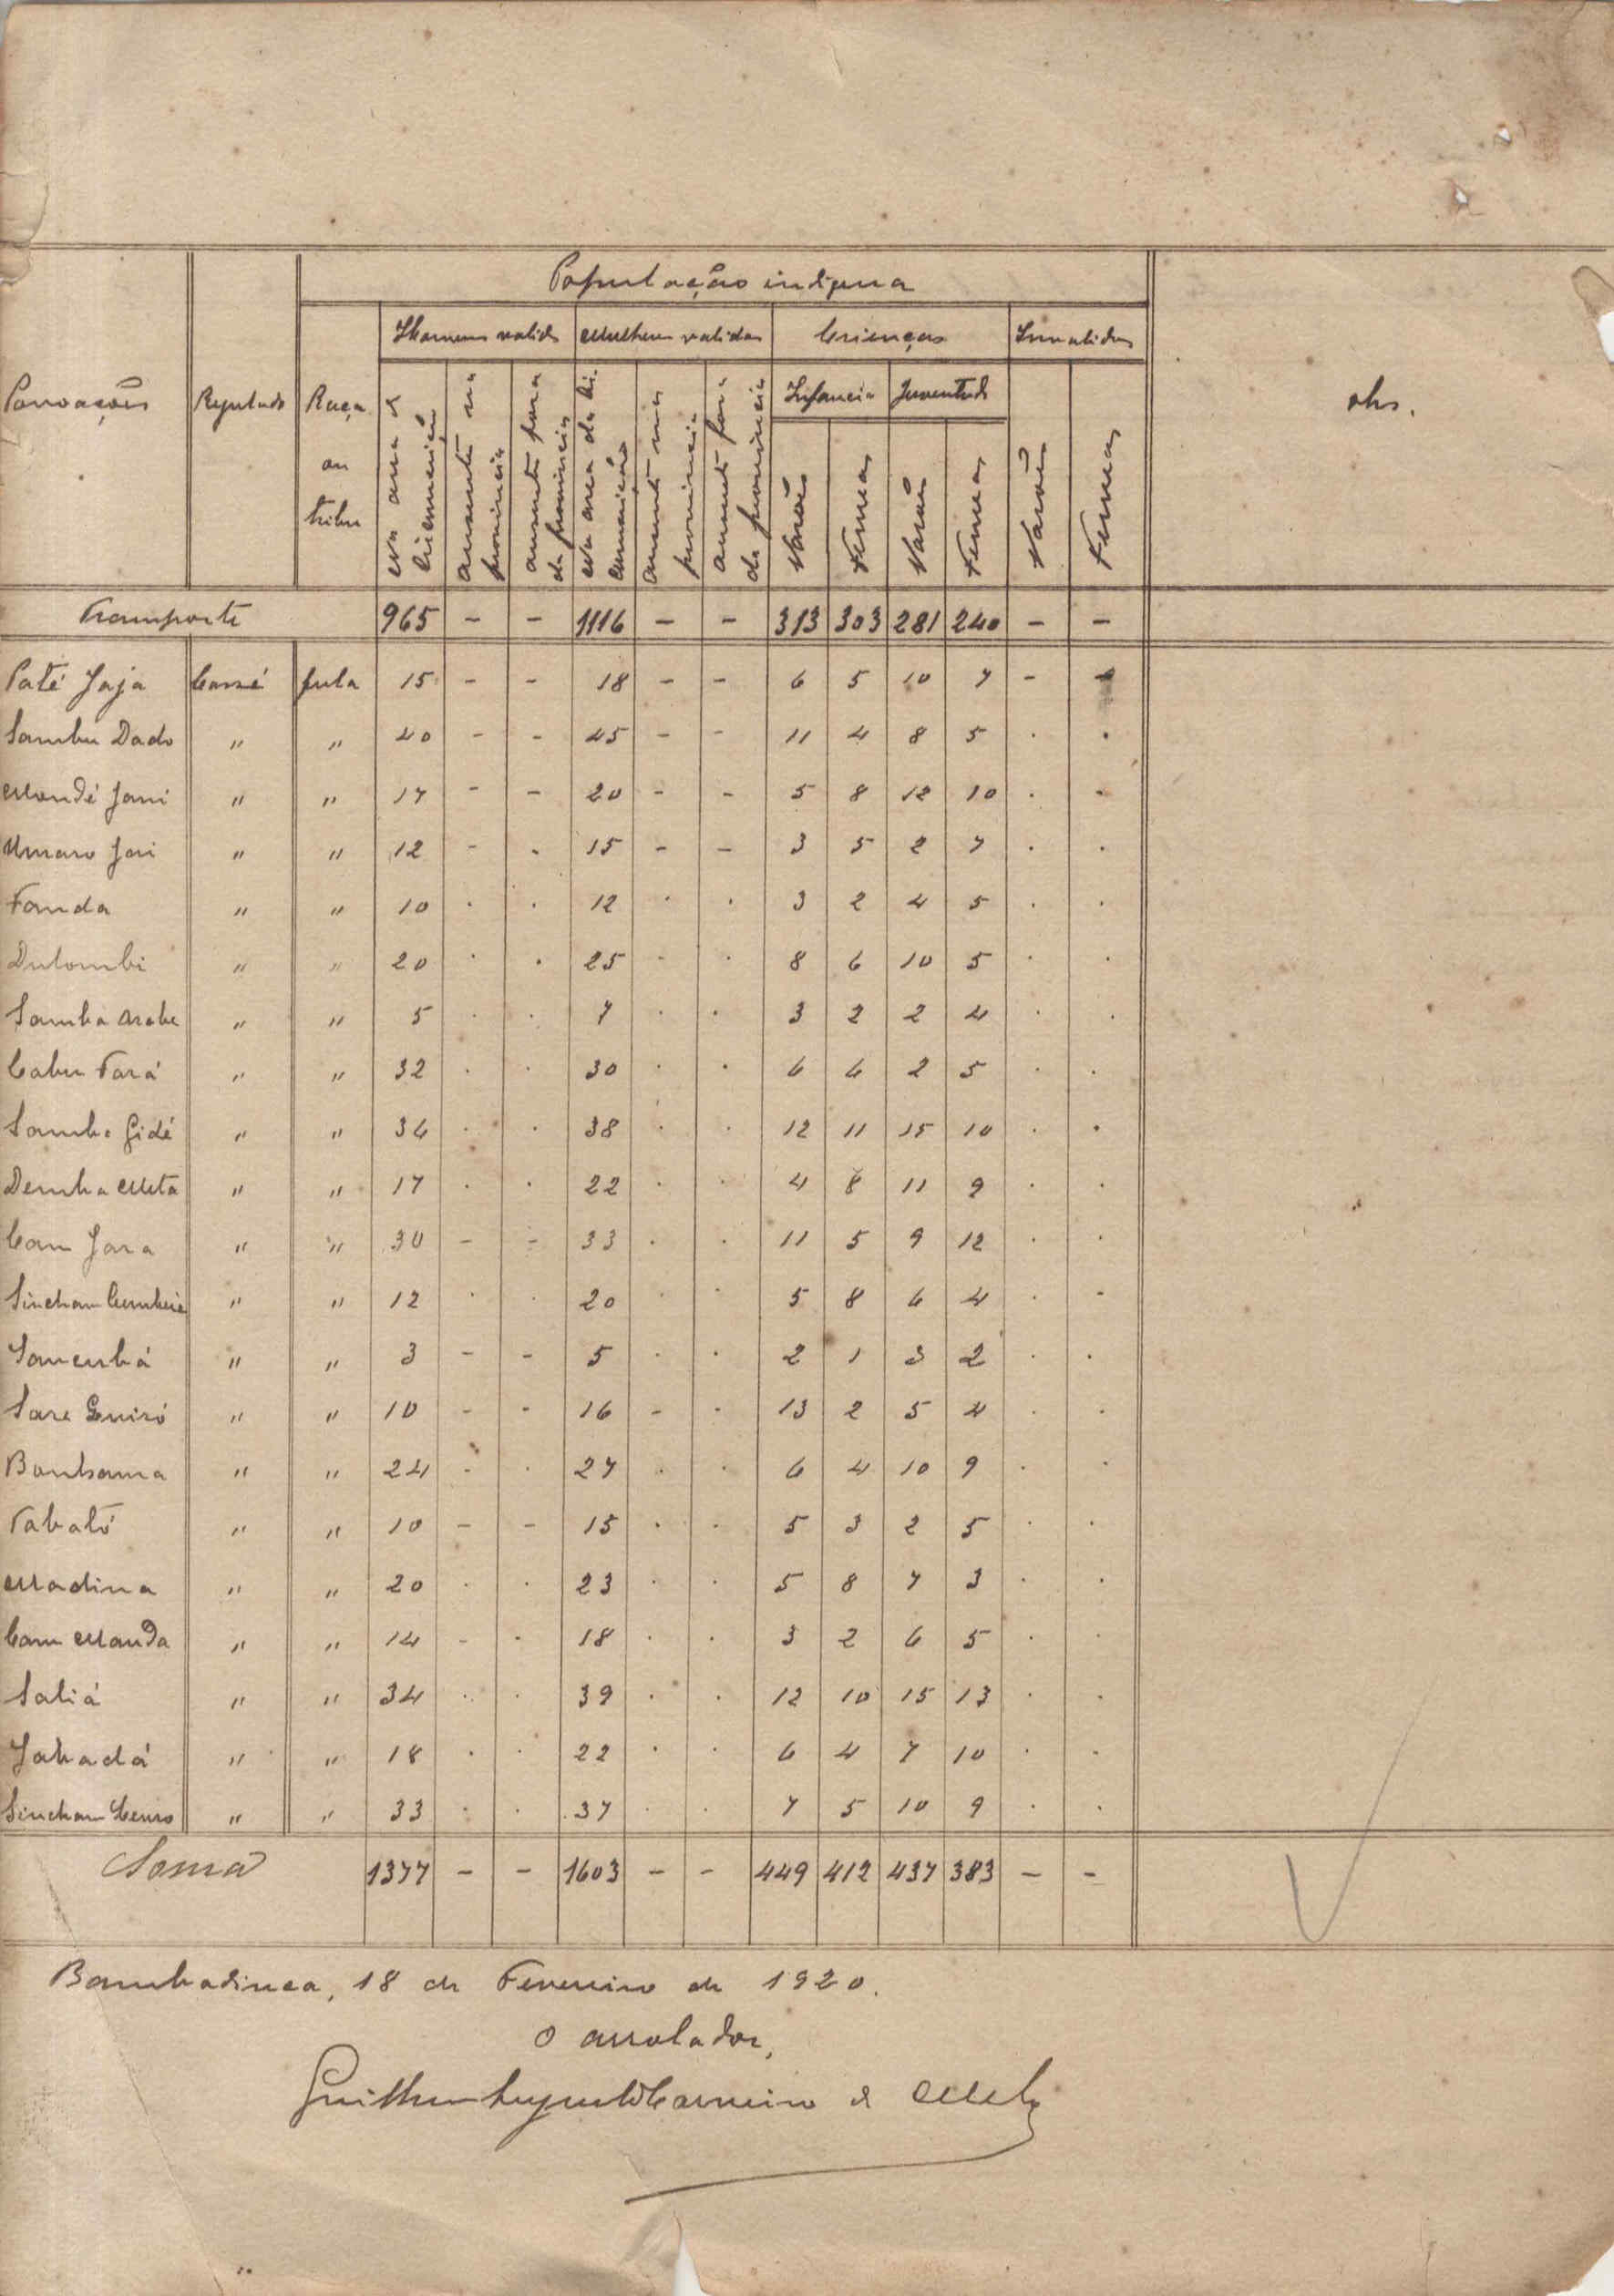 População indigena
Homens validos Mulheres validas Crianças Invalidos
Povoações Regulado Raça ou tribu Infancia Juventude obs.
Na area da circunscrição ausentes na provincia ausentes fora da provincia Na area da circunscrição ausentes na provincia ausentes fora da provincia Varões Femeas Varões Femeas Varões Femeas
Transporte 965 - - 1116 - - 313 303 281 240 - -
Paté Jaja Cossé fula 15 - - 18 - - 6 5 10 7 - -
Sambu Dado " " 40 - - 45 - - 11 4 8 5 . .
Mondé Jani " " 17 - - 20 - - 5 8 12 10 . .
Umaro Jori " " 12 - . 15 - - 3 5 2 7 . .
Fanda " " 10 . . 12 . . 3 2 4 5 . .
Dulombi " " 20 . . 25 - . 8 6 10 5 . .
Samba Arabe " " 5 . . 7 . . 3 2 2 4 . .
Cabu Fará " " 32 . . 30 . . 6 6 2 5 . .
Samba Gidé " " 34 . . 38 . . 12 11 15 10 . .
Demba Meta " " 17 . . 22 . . 4 8 11 9 . .
Cam Jara " " 30 - - 33 . . 11 5 9 12 . .
Sincham " " 12 . . 20 . . 5 8 6 4 . -
Sancubá " " 3 - - 5 . . 2 1 3 2 . .
Sare Guiró " " 10 - - 16 - . 13 2 5 4 . .
Bantsama " " 24 . . 27 . . 6 4 10 9 . .
Tabató " " 10 - - 15 . . 5 3 2 5 . .
Madina " " 20 . . 23 . . 5 8 7 3 . .
Cam Manda " " 14 - . 18 . . 3 2 6 5 . .
Saliá " " 34 . . 39 . . 12 10 15 13 . .
Jabadá " " 18 . . 22 . . 6 4 7 10 . .
Sincham " " 33 . . 37 . . 7 5 10 9 . .
Soma 1377 - - 1603 - - 449 412 437 383 - -
Bambadinca, 18 de Fevereiro de 1920.
O arrolador,
Carneiro de Mello